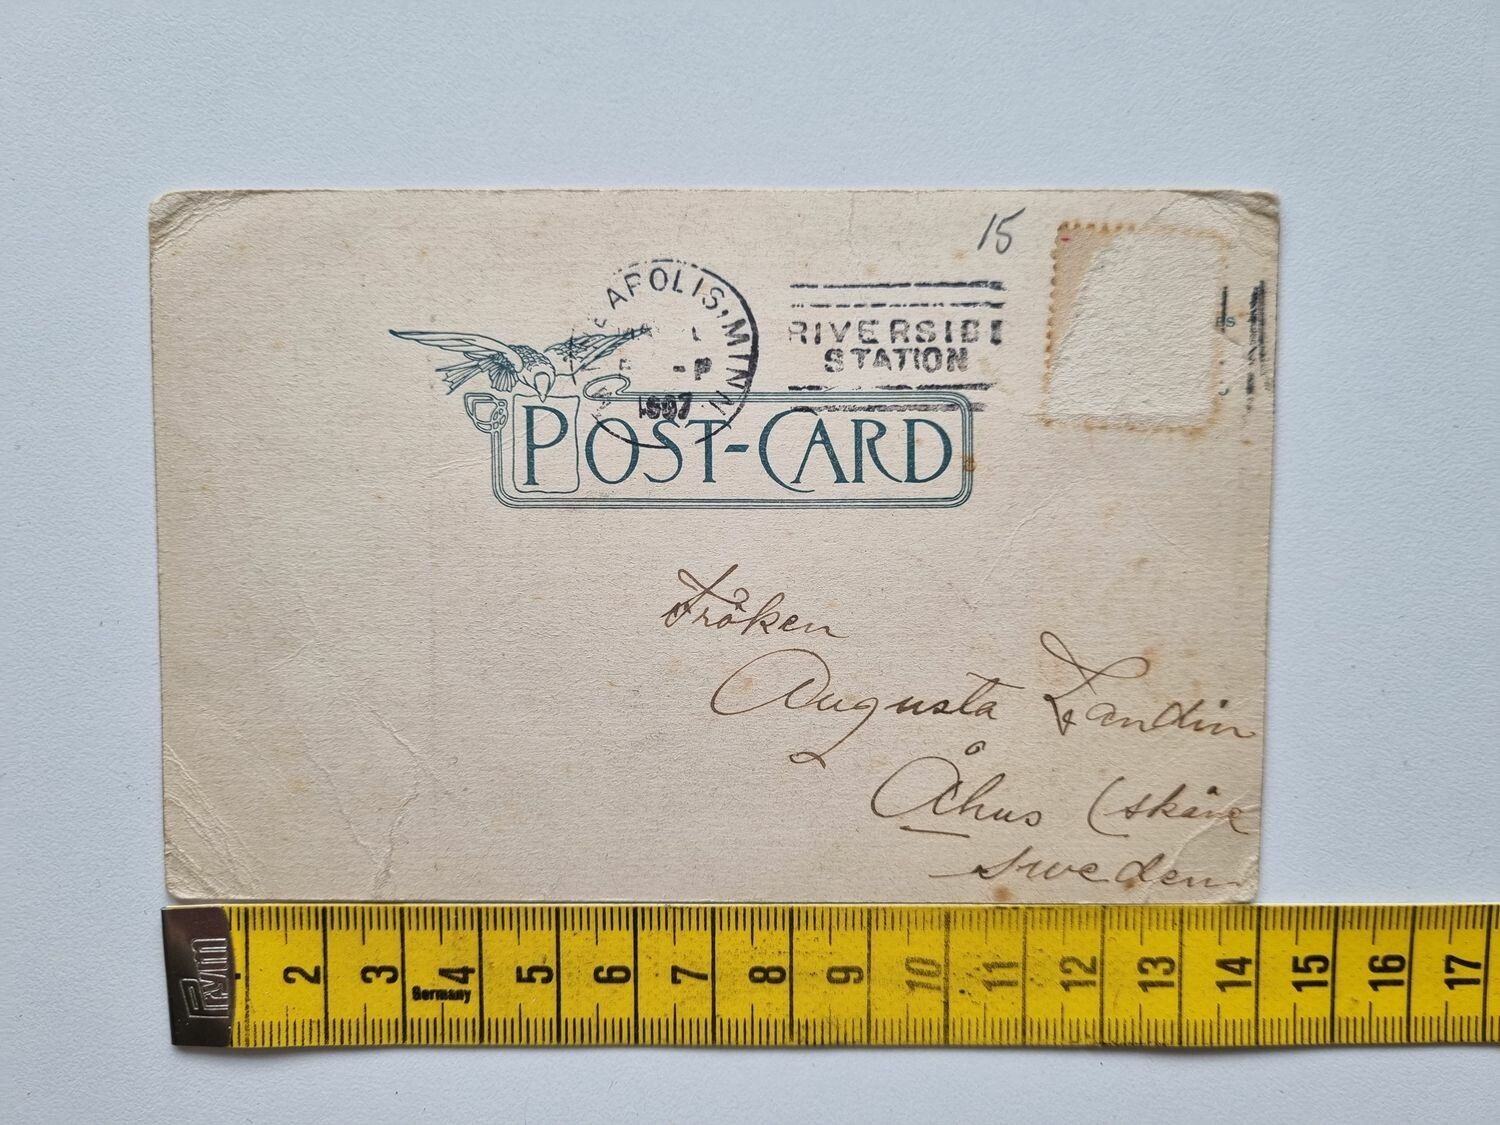 15
APOLIS, MINN
-P
1907
RIVERSIDE
STATION
POST-CARD
Fröken
Augusta Landin
Åhus (Skåne
Sweden
Prym
2 3 4 5 6 7 8 9 10 11 12 13 14 15 16 17
Germany